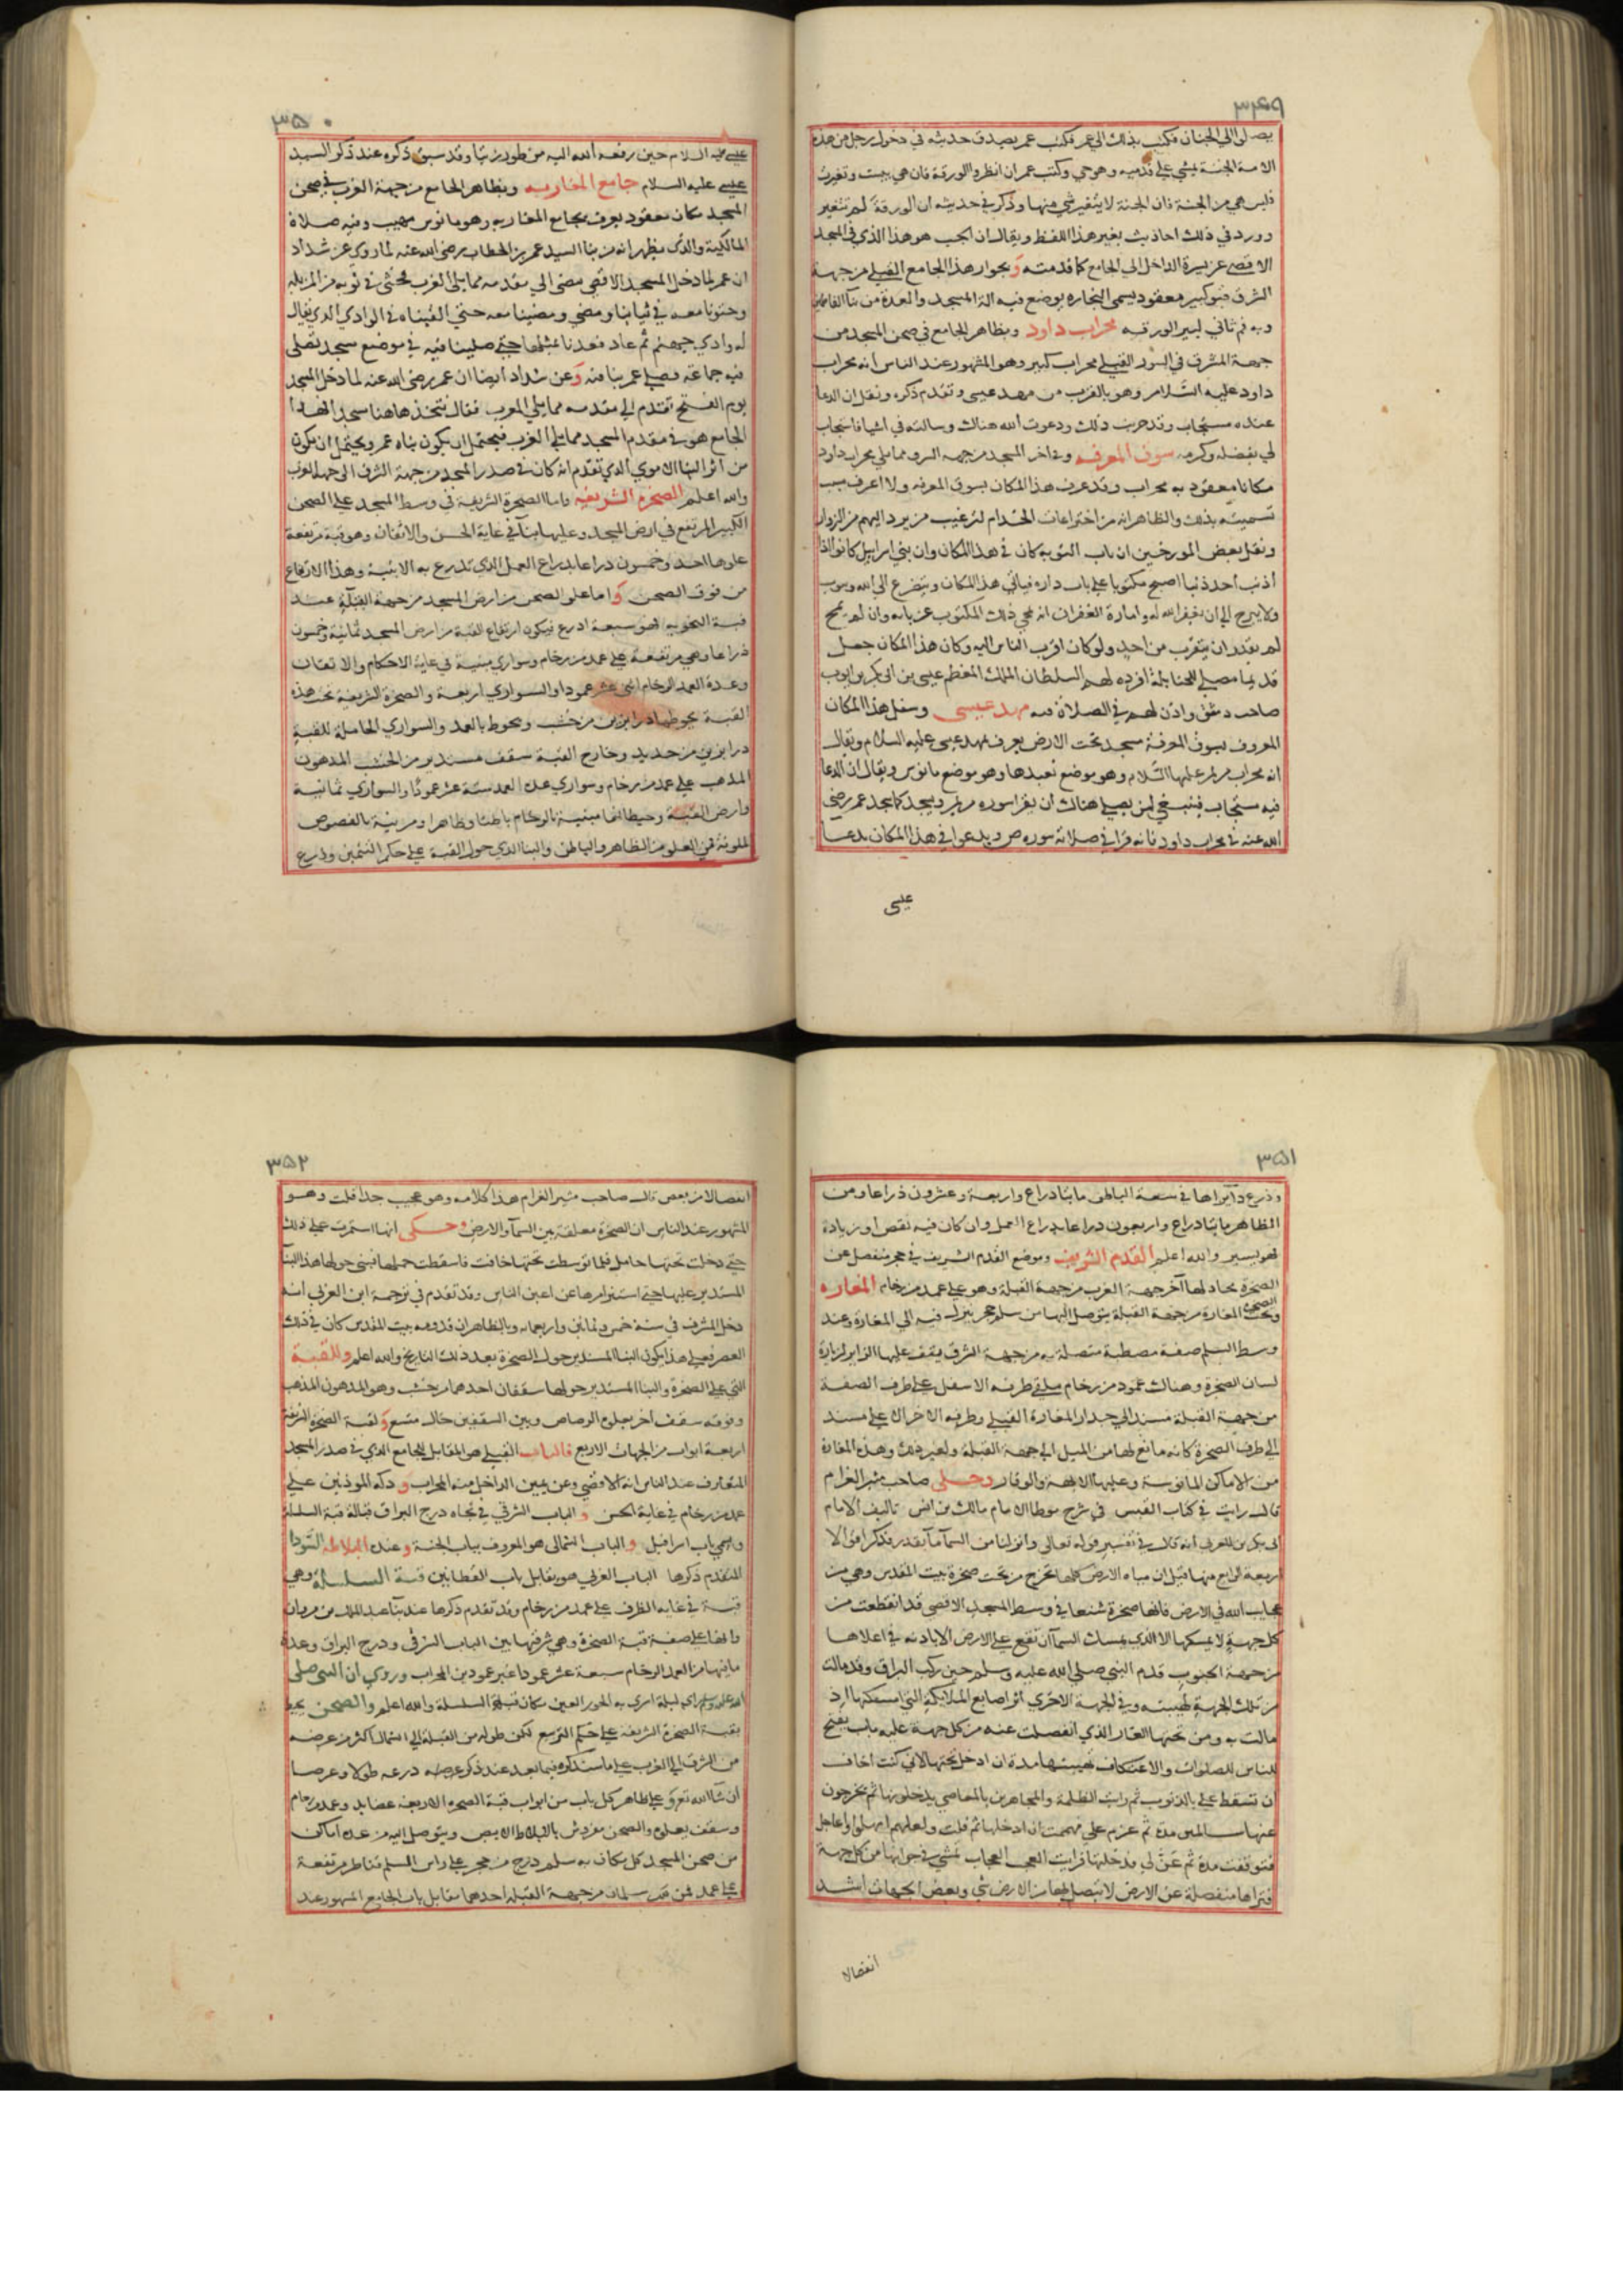 ٣٤٩
يصل الى الجنان فكتب بذلك الى عمر فكتب عمر يصدق حديثه في دخول رجل من هذه
الامة الجنة يمشي على قدميه وهو حي وكتب عمر ان انظروا الورقة فان هي يبست وتغيرت
فليس هي من الجنة فان الجنة لا يتغير شي منها وذكر في حديثه ان الورقة لم تتغير
وورد في ذلك احاديث بغير هذا اللفظ ويقال ان الجب هو هذا الذي في المسجد
الاقصى عن يسرة الداخل الى الجامع كما قدمته وبجوار هذا الجامع القبلي من جهة
الشرق قبو كبير معقود يسمى النجارة يوضع فيه الة المسجد والعدة من بنا الفاطميين
وبه فم ثاني لبير الورقه محراب داود وبظاهر الجامع في صحن المسجد من
جهة المشرق في السور القبلي محراب كبير وهو المشهور عند الناس انه محراب
داود عليه السلام وهو بالقرب من مهد عيسى وتقدم ذكره ونقل ان الدعا
عنده مستجاب وقد جربت ذلك ودعوت الله هناك وسالته في اشيا فاستجاب
لي بفضله وكرمه سوق المعرفه وفي اخر المسجد من جهة الشرق مما يلي محراب داود
مكانا معقود به محراب وقد عرف هذا المكان بسوق المعرفه ولا اعرف سبب
تسميته بذلك والظاهر انه من اختراعات الخدام لترغيب من يرد اليهم من الزوار
ونقل بعض المورخين ان باب التوبه كان في هذا المكان وان بني اسراييل كانوا اذا
اذنب احد ذنبا اصبح مكتوبا على باب داره فياتي هذا المكان ويتضرع الى الله ويتوب
ولا يبرح الى ان يغفر الله له وامارة الغفران ان يمحى ذلك المكتوب عن بابه وان لم يمح
لم يقدر ان يتقرب من احد ولو كان اقرب الناس اليه وكان هذا المكان جعل
قديما مصلى للحنابلة افرده لهم السلطان الملك المعظم عيسى بن ابي بكر بن ايوب
صاحب دمشق واذن لهم في الصلاة فيه مهد عيسى وسفل هذا المكان
المعروف بسوق المعرفة مسجد تحت الارض يعرف بمهد عيسى عليه السلام ويقال
انه محراب مريم عليها السلام وهو موضع تعبدها وهو موضع مانوس ويقال ان الدعا
فيه مستجاب فينبغي لمن يصلي هناك ان يقرا سوره مريم ويسجد كما سجد عمر رضي
الله عنه في محراب داود فانه قرا في صلاته سوره ص ويدعوا في هذا المكان بدعا
عيسى
٣٥٠
عيسى عليه السلام حين رفعه الله اليه من طور زيتا وقد سبق ذكره عند ذكر السيد
عيسى عليه السلام جامع المغاربه وبظاهر الجامع من جهة الغرب في صحن
المسجد مكان معقود يعرف بجامع المغاربه وهو مانوس مهيب وفيه صلاة
المالكية والذي يظهر انه من بنا السيد عمر بن الخطاب رضي الله عنه لما روي عن شداد
ان عمر لما دخل المسجد الاقصى مضى الى مقدمه مما يلي الغرب فحثى في ثوبه من المزبله
وحثونا معه في ثيابنا ومضى ومضينا معه حتى القيناه في الوادي الذي يقال
له وادي جهنم ثم عاد فعدنا بمثلها حتى صلينا فيه في موضع مسجد يصلى
فيه جماعة فصلى عمر بنا فيه وعن شداد ايضا ان عمر رضي الله عنه لما دخل المسجد
يوم الفتح تقدم الى مقدمه مما يلي الغرب فقال نتخذ هاهنا مسجدا فهذا
الجامع هو في مقدم المسجد مما يلي الغرب فيحتمل ان يكون بناه عمر ويحتمل ان يكون
من اثر البنا الاموي الذي تقدم انه كان في صدر المسجد من جهة الشرق الى جهة الغرب
والله اعلم الصخرة الشريفه واما الصخرة الشريفة في وسط المسجد على الصحن
الكبير المرتفع في ارض المسجد وعليها بنا في غاية الحسن والاتقان وهو قبة مرتفعة
علوها احد وخمسون ذراعا بذراع العمل الذي تذرع به الابنية وهذا الارتفاع
من فوق الصحن واما علو الصحن من ارض المسجد من جهة القبلة عند
قبة النحويه فهو سبعة اذرع فيكون ارتفاع القبة من ارض المسجد ثمانية وخمسون
ذراعا وهي مرتفعة على عمد من رخام وسواري مبنية في غاية الاحكام والاتقان
وعدة العمد الرخام اثنى عشر عمودا والسواري اربعة والصخرة الشريفة تحت هذه
القبة يحوطها درابزين من خشب ويحوط بالعمد والسواري الحاملة للقبة
درابزين من حديد وخارج القبة سقف مستدير من الخشب المدهون
المذهب على عمد من رخام وسواري عدة العمد ستة عشر عمودا والسواري ثمانية
وارض القبة وحيطانها مبنية بالرخام باطنا وظاهرا ومزينة بالفصوص
الملونة في العلو من الظاهر والباطن والبنا الذي حول القبة على حكم التثمين وذرع
٣٥١
وذرع دايرها في سعة الباطن مايتا ذراع واربعة وعشرون ذراعا ومن
الظاهر مايتا ذراع واربعون ذراعا بذراع العمل وان كان فيه نقص او زيادة
فهو يسير والله اعلم القدم الشريف وموضع القدم الشريف في حجر منفصل عن
الصخرة محاد لها آخر جهة الغرب من جهة القبلة وهو على عمد من رخام المغاره
وتحت الصخرة المغارة من جهة القبلة يتوصل اليها من سلم حجر ينزل فيه الى المغارة وعند
وسط السلم صفة مصطبة متصلة به من جهة الشرق يقف عليها الزاير لزيارة
لسان الصخرة وهناك عمود من رخام ملقى طرفه الاسفل على طرف الصفة
من جهة القبلة مسند الى جدار المغارة القبلي وطرفه الاخر الى على مسند
الى طرف الصخرة كانه مانع لها من الميل الى جهة القبلة ولغير ذلك وهذه المغارة
من الاماكن المانوسة وعليها الابهة والوقار وحكى صاحب مثير الغرام
قال رايت في كتاب القبس في شرح موطا الامام مالك بن انس تاليف الامام
ابي بكر بن العربي انه قال في تفسير قوله تعالى وانزلنا من السما ما بقدر فذكر اقوالا
اربعة الرابع منها قيل ان مياه الارض كلها تخرج من تحت صخرة بيت المقدس وهي من
عجايب الله في الارض فانها صخرة شنعا في وسط المسجد الاقصى قد انقطعت من
كل جهة لا يمسكها الا الذي يمسك السما ان تقع على الارض الا باذنه في اعلاها
من جهة الجنوب قدم النبي صلى الله عليه وسلم حين ركب البراق وقد مالت
من تلك الجهة لهيبته وفي الجهة الاخرى اثر اصابع الملايكة التي امسكتها اذ
مالت به ومن تحتها الغار الذي انفصلت عنه من كل جهة عليه باب يفتح
للناس للصلوات والاعتكاف فهيبتها مدة ان ادخل تحتها لاني كنت اخاف
ان تسقط علي بالذنوب ثم رايت الظلمة والمجاهرين بالمعاصي يدخلونها ثم يخرجون
عنها سالمين مدة ثم عزم علي فهممت ان ادخلها ثم قلت ولعلهم امهلوا واعاجل
فتوقفت مدة ثم عن لي فدخلتها فرايت العجب العجاب نمشي في جوانبها من كل جهة
فتراها منفصلة عن الارض لا يتصل بها من الارض شي وبعض الجهات اشد
انفصالا
٣٥٢
انفصالا من بعض قال صاحب مثير الغرام هذا كلامه وهو عجيب جدا قلت وهو
المشهور عند الناس ان الصخرة معلقة بين السما والارض وحكى انها استمرت على ذلك
حتى دخلت تحتها حامل فلما توسطت تحتها خافت فاسقطت حملها فبنى حولها هذا البنا
المستدير عليها حتى استتر امرها عن اعين الناس وقد تقدم في ترجمة ابن العربي انه
دخل المشرق في سنة خمس وثمانين واربعمايه وبالظاهر ان قدومه بيت المقدس كان في ذلك
العصر فعلى هذا يكون البنا المستدير حول الصخرة بعد ذلك التاريخ والله اعلم وللقبة
التي على الصخرة والبنا المستدير حولها سقفان احدهما من خشب وهو المدهون المذهب
وفوقه سقف اخر يعلوه الرصاص وبين السقفين خال متسع ولقبة الصخرة الشريفة
اربعة ابواب من الجهات الاربع فالباب القبلي هو المقابل للجامع الذي في صدر المسجد
المتعارف عند الناس انه الاقصى وعن يمين الداخل منه المحراب و دكة الموذنين على
عمد من رخام في غاية الحسن و الباب الشرقي في تجاه درج البراق قبالة قبة السلسلة
واسمي باب اسرافيل والباب الشمالي هو المعروف بباب الجنة وعنده البلاطه السودا
المتقدم ذكرها الباب الغربي هو يقابل باب القطانين قبة السلسلة وهي
قبة في غاية الظرف على عمد من رخام وقد تقدم ذكرها عند بنا عبد الملك بن مروان
وانها على صفة قبة الصخرة وهي شرقيها بين الباب الشرقي ودرج البراق وعدة
ما فيها من العمد الرخام سبعة عشر عمودا غير عمودين المحراب وروي ان النبي صلى
الله عليه وسلم راى ليلة اسري به الحور العين مكان قبة السلسلة والله اعلم والصحن يحيط
بقبة الصخرة الشريفة على حكم التربيع لكن طوله من القبلة الى الشمال اكثر من عرضه
من الشرق الى الغرب على ما سنذكره فيما بعد عند ذكر عرضه ذرعه طولا وعرضا
ان شا الله تع و على ظاهر كل باب من ابواب قبة الصخرة الاربعة عضايد وعمد من رخام
وسقف يعلوه والصحن مفروش بالبلاط الابيض ويتوصل اليه من عدة اماكن
من صحن المسجد كل مكان به سلم درج من حجر على راس السلم قناطر مرتفعة
على عمد فمن ذلك سلمان من جهة القبلة احدهما مقابل باب الجامع المشهور عند